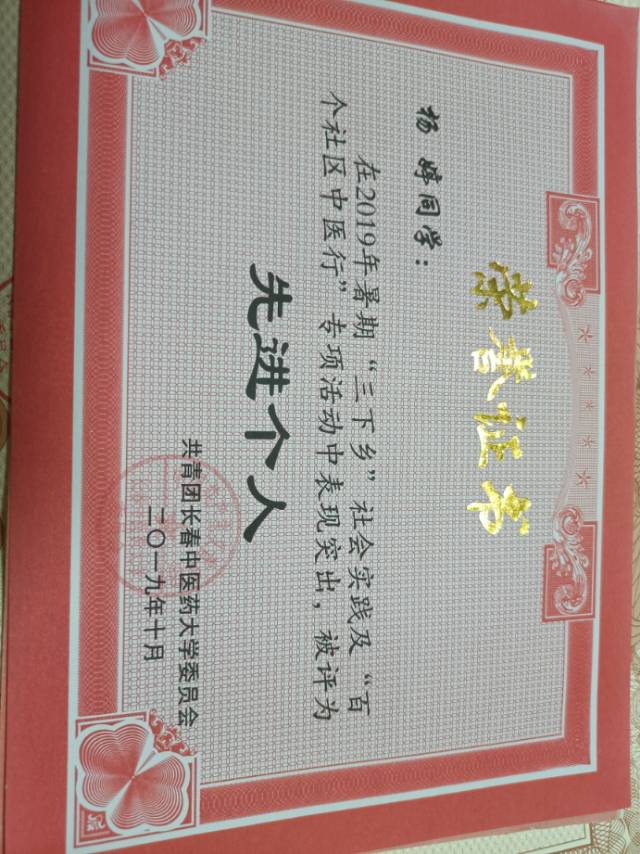 荣誉证书
杨婷同学：
在2019年暑期“三下乡”社会实践及“百
个社区中医行”专项活动中表现突出，被评为
先进个人
共青团长春中医药大学委员会
二〇一九年十月